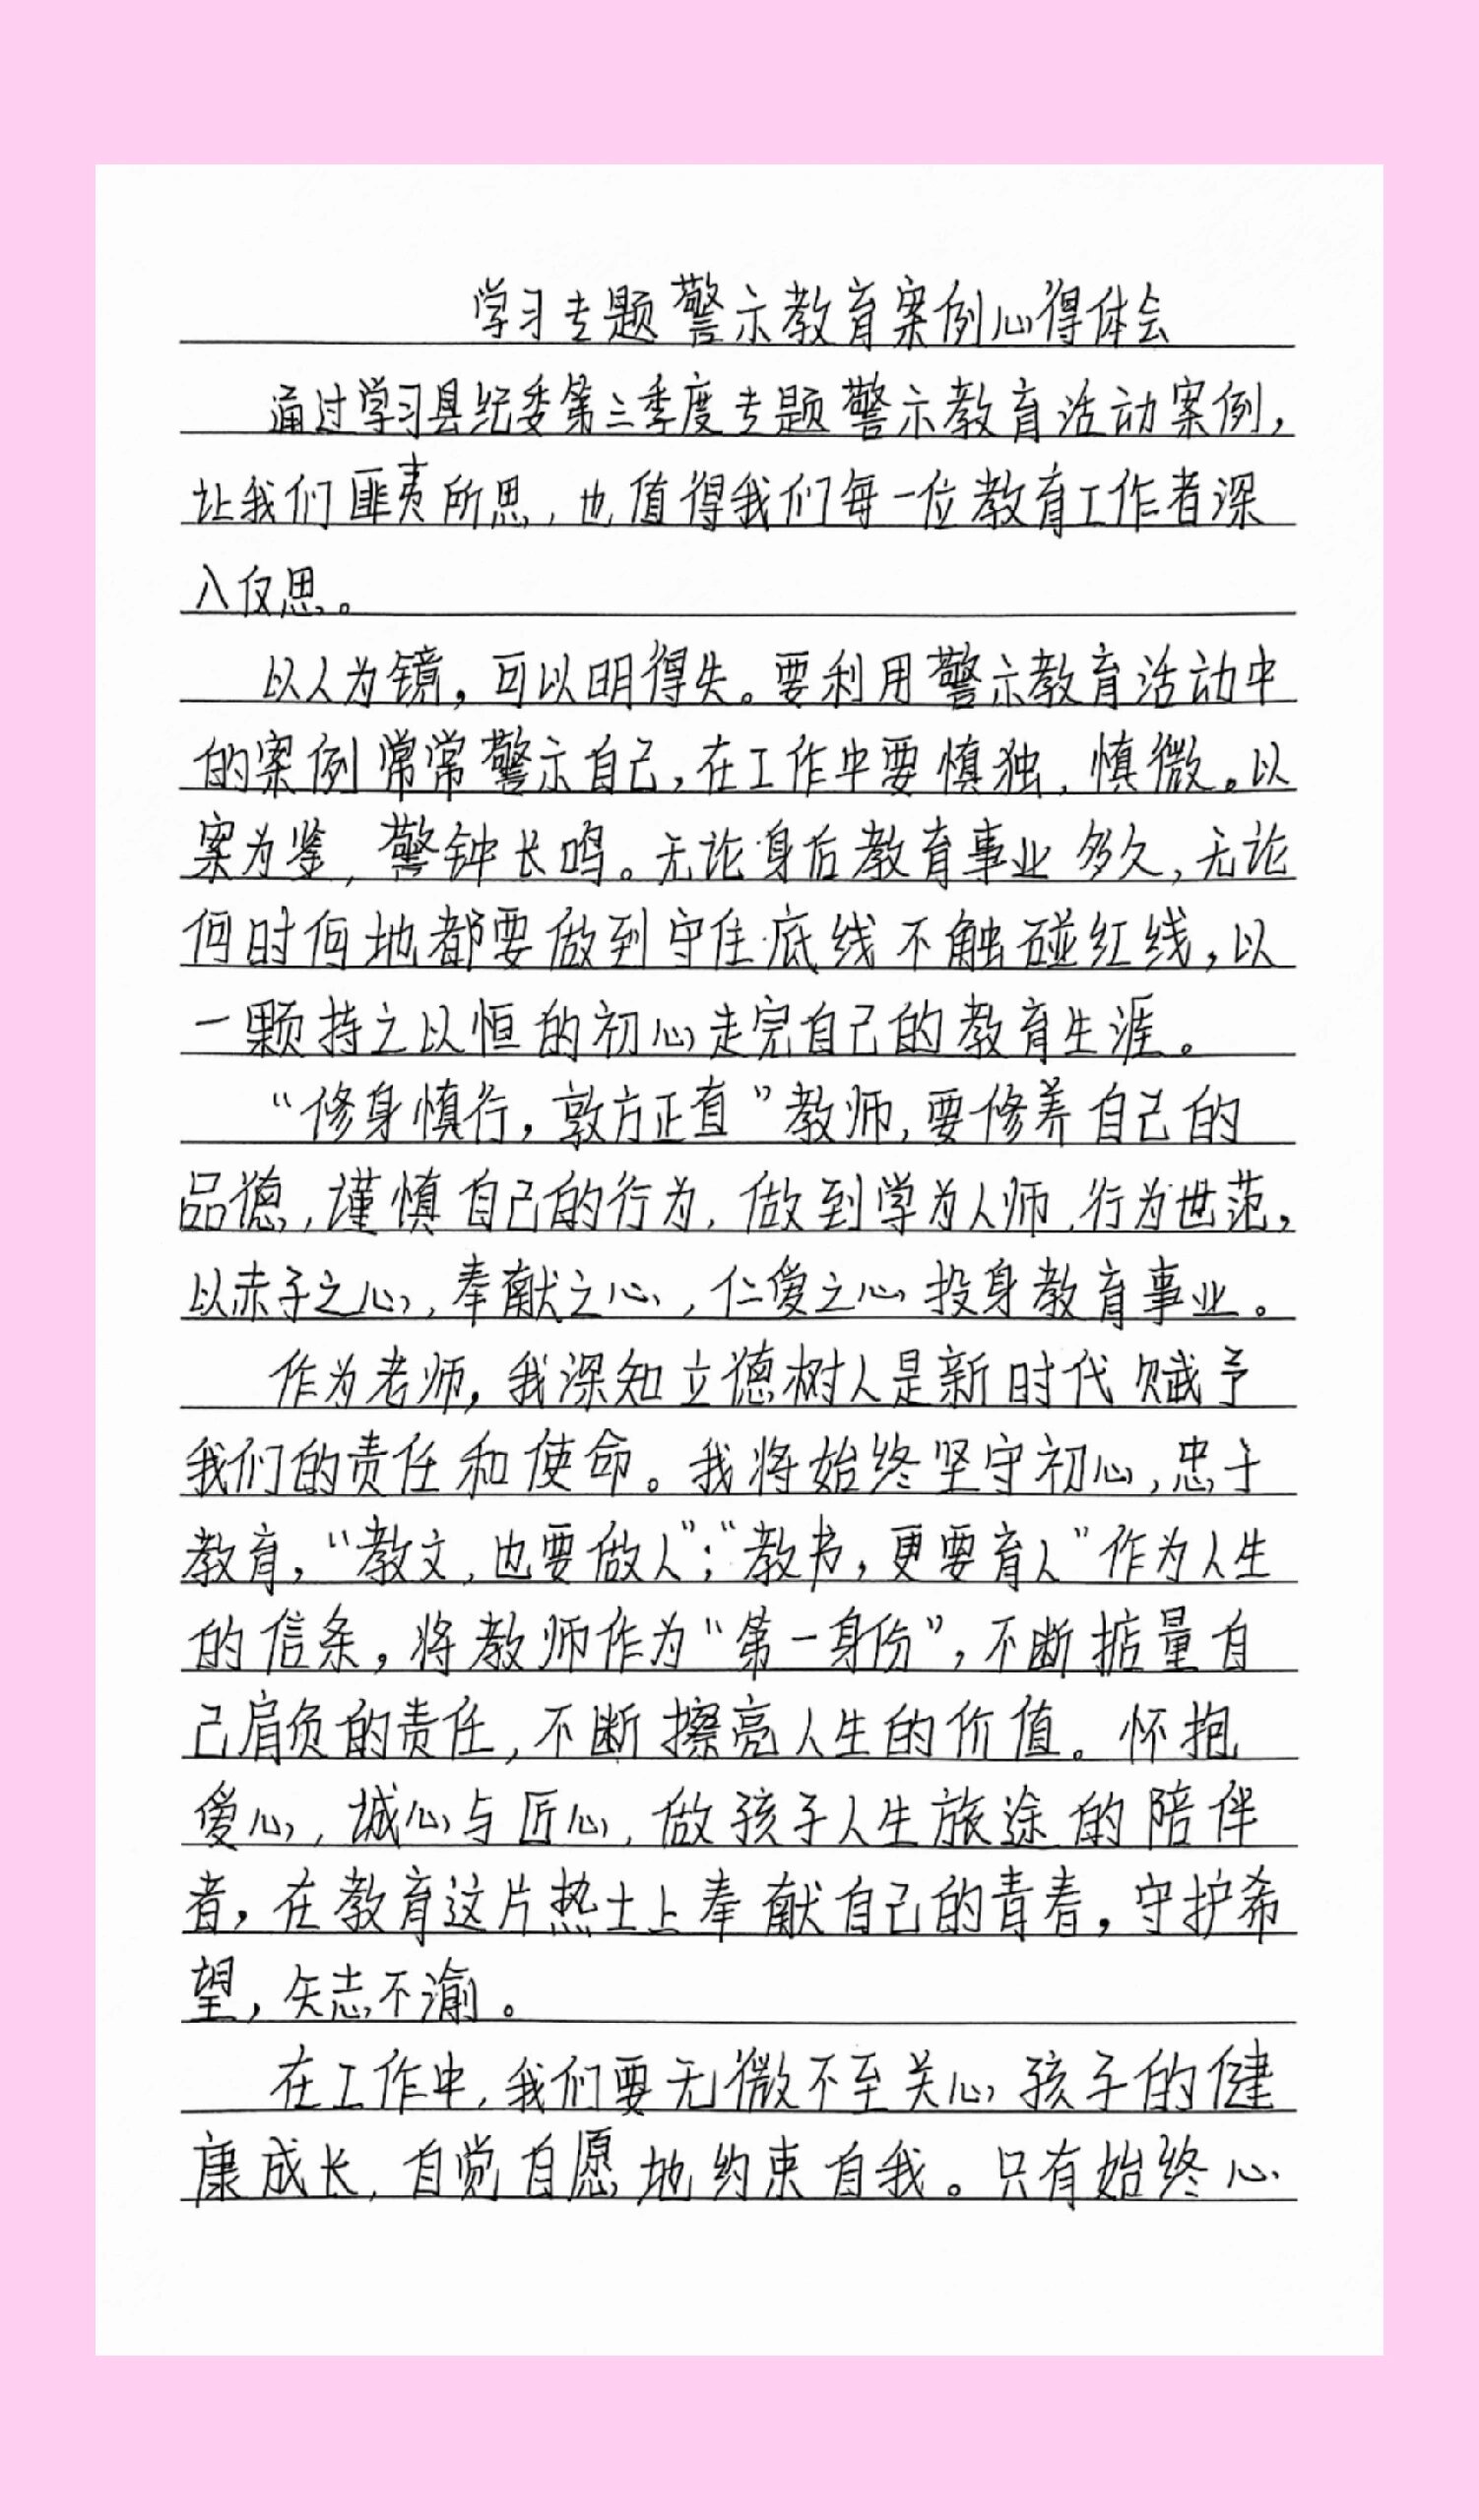 学习专题警示教育案例心得体会
通过学习县纪委第三季度专题警示教育活动案例,
让我们匪夷所思,也值得我们每一位教育工作者深
入反思。
以人为镜,可以明得失。要利用警示教育活动中
的案例常常警示自己,在工作中要慎独,慎微。以
案为鉴,警钟长鸣。无论身后教育事业多久,无论
何时何地都要做到守住底线不触碰红线,以
一颗持之以恒的初心走完自己的教育生涯。
“修身慎行,敦方正直”教师,要修养自己的
品德,谨慎自己的行为,做到学为人师,行为世范,
以赤子之心,奉献之心,仁爱之心投身教育事业。
作为老师,我深知立德树人是新时代赋予
我们的责任和使命。我将始终坚守初心,忠于
教育,“教文,也要做人”;“教书,更要育人”作为人生
的信条,将教师作为“第一身份”,不断掂量自
己肩负的责任,不断擦亮人生的价值。怀抱
爱心,诚心与匠心,做孩子人生旅途的陪伴
者,在教育这片热土上奉献自己的青春,守护希
望,矢志不渝。
在工作中,我们要无微不至关心孩子的健
康成长,自觉自愿地约束自我。只有始终心